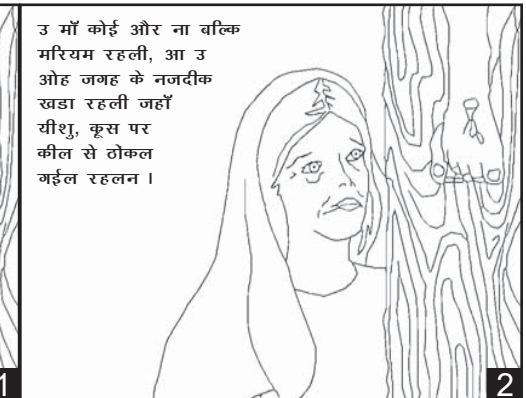 उ माँ कोई और ना बल्कि
मरियम रहली, आ उ
ओह जगह के नजदीक
खडा रहली जहाँ
यीशु, कूस पर
कील से ठोकल
गईल रहलन ।
1
2